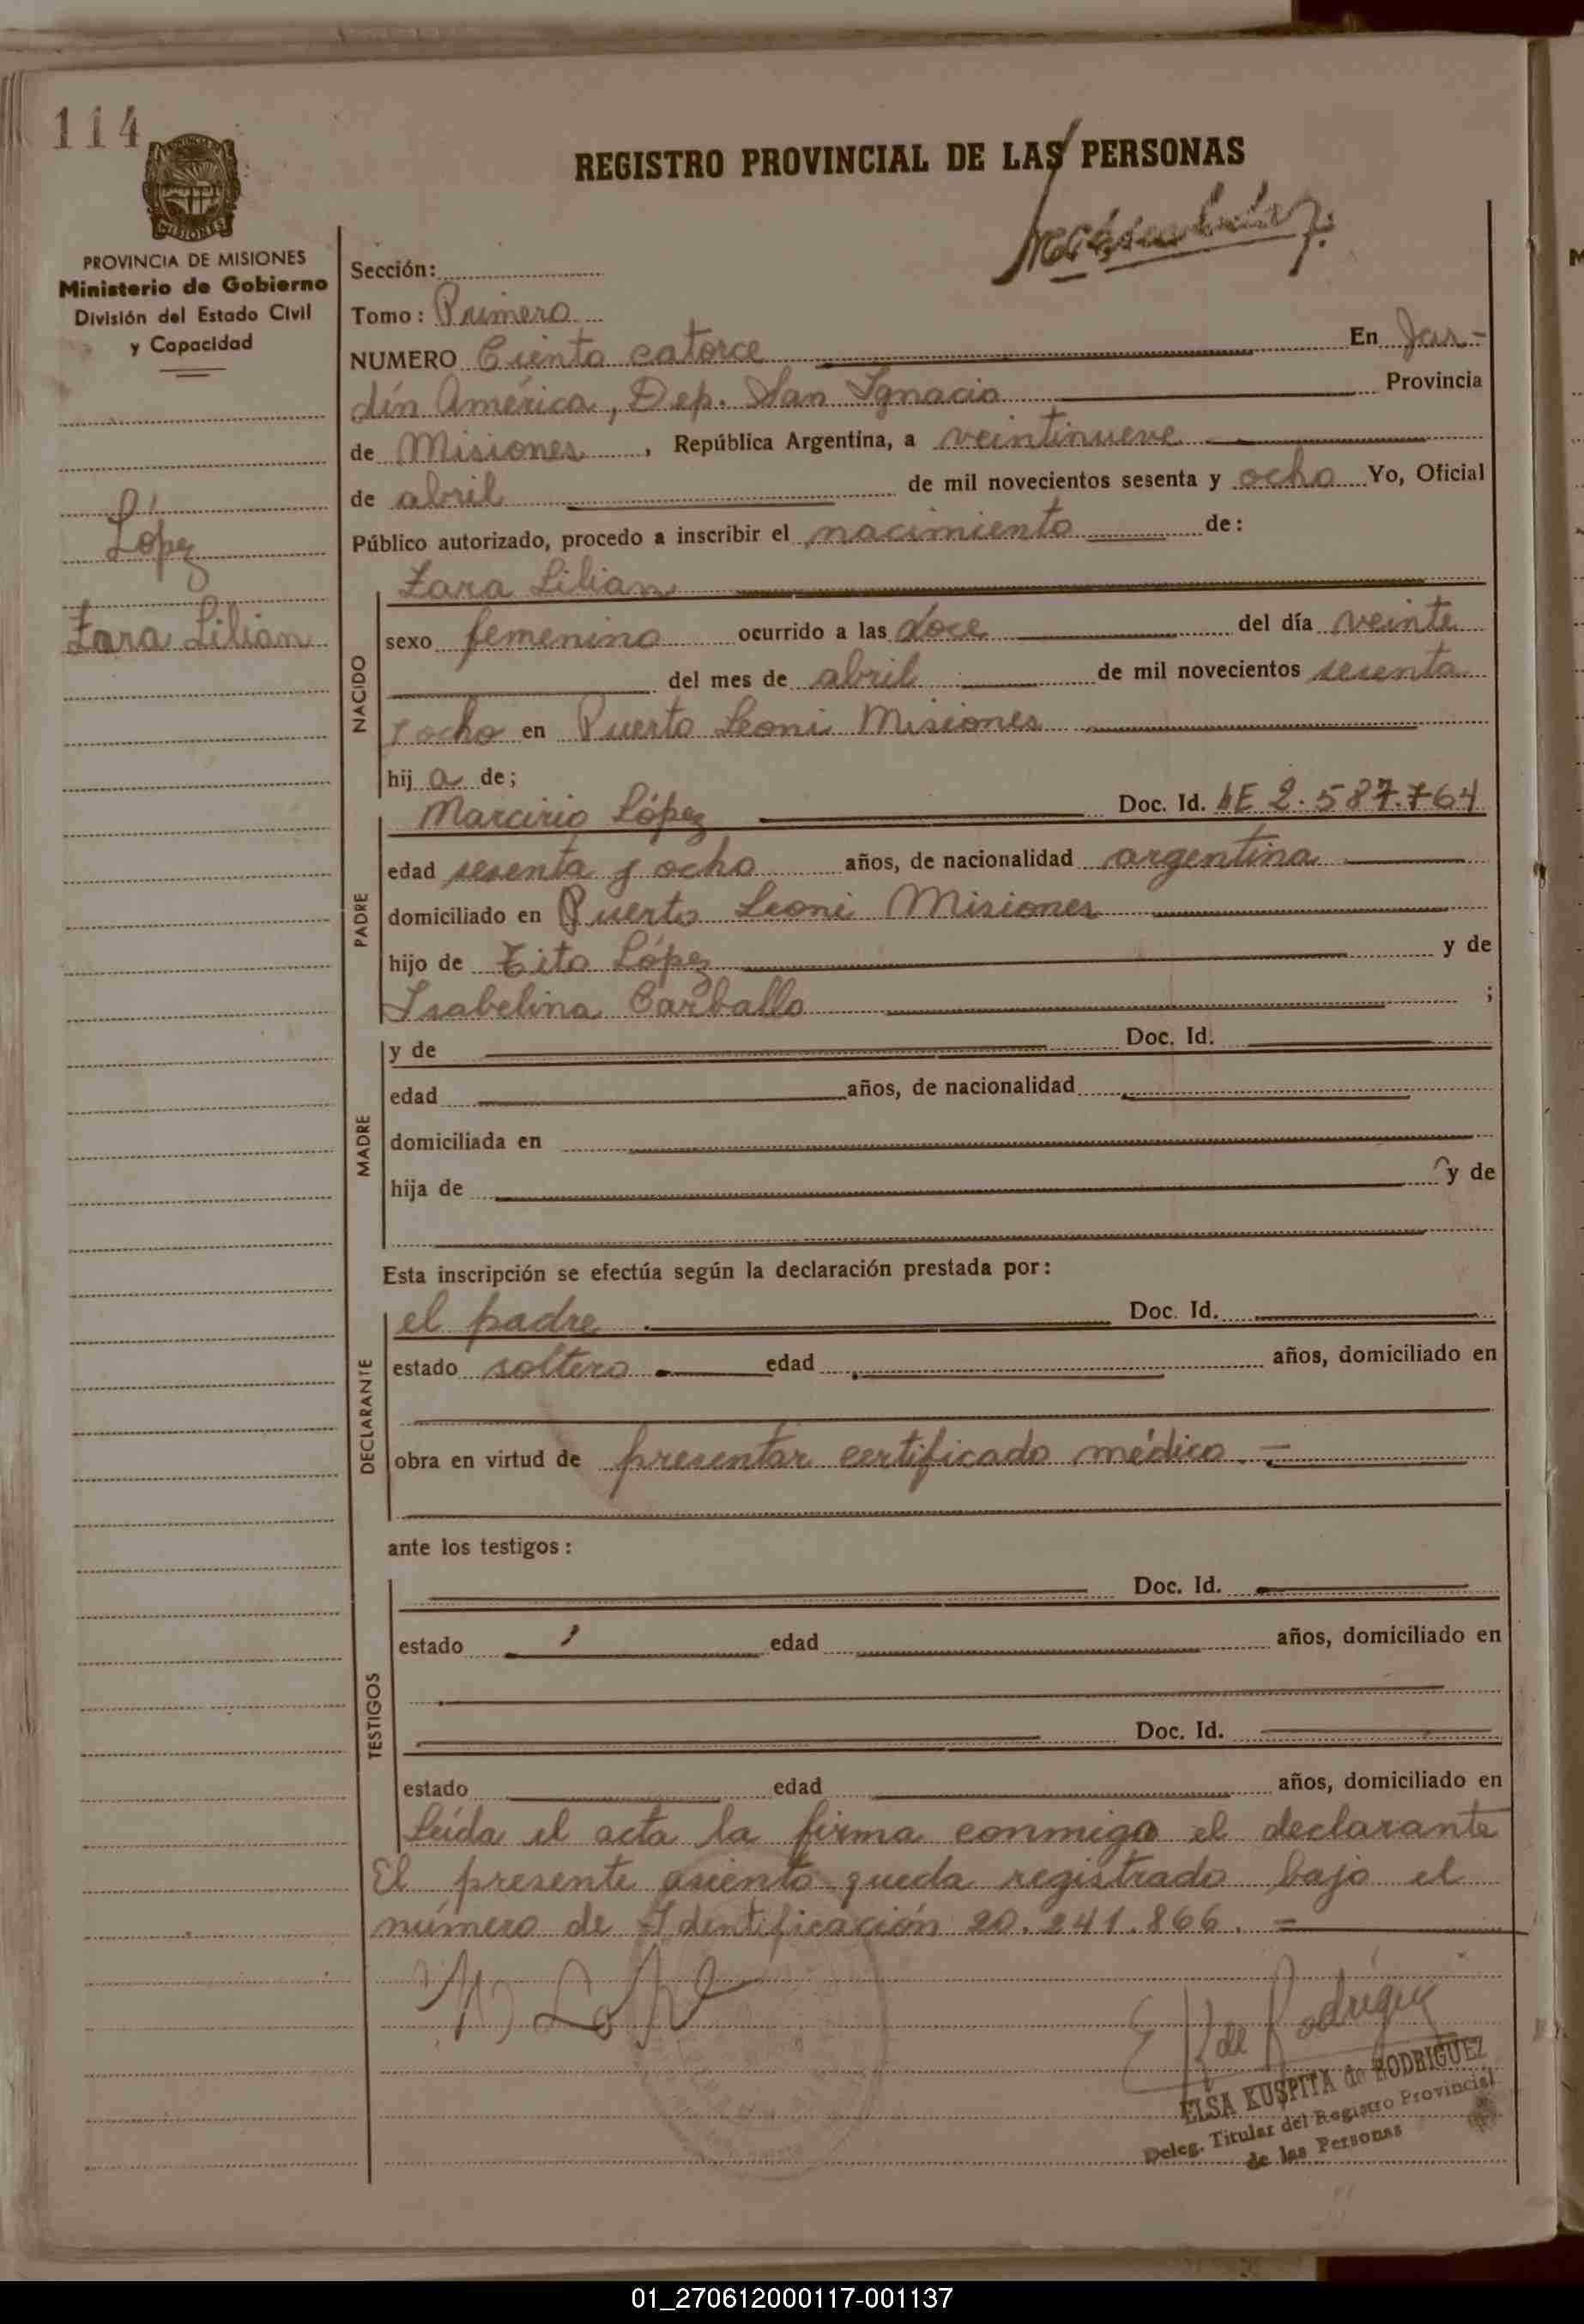 114
REGISTRO PROVINCIAL DE LAS PERSONAS
MISIONES
PROVINCIA DE MISIONES
Ministerio de Gobierno
División del Estado Civil
y Capacidad
López
Zara Lilian
Sección:
Tomo: Primero
NUMERO Ciento catorce En Jar-
dín América, Dep. San Ignacio Provincia
de Misiones, República Argentina, a veintinueve
de abril de mil novecientos sesenta y ocho Yo, Oficial
Público autorizado, procedo a inscribir el nacimiento de:
NACIDO
Zara Lilian
sexo femenino ocurrido a las doce del día veinte
del mes de abril de mil novecientos sesenta
y ocho en Puerto Leoni Misiones
hija de;
PADRE
Marcirio López Doc. Id. LE 2.587.764
edad sesenta y ocho años, de nacionalidad argentina
domiciliado en Puerto Leoni Misiones
hijo de Tito López y de
Isabelina Carballo ;
MADRE
y de Doc. Id.
edad años, de nacionalidad
domiciliada en
hija de y de
Esta inscripción se efectúa según la declaración prestada por:
DECLARANTE
el padre Doc. Id.
estado soltero edad años, domiciliado en
obra en virtud de presentar certificado médico.=
ante los testigos:
TESTIGOS
Doc. Id.
estado edad años, domiciliado en
Doc. Id.
estado edad años, domiciliado en
Leída el acta la firma conmigo el declarante
El presente asiento queda registrado bajo el
número de Identificación 20.241.866.=
E K de Rodríguez
ELSA KUSPITA de RODRIGUEZ
Deleg. Titular del Registro Provincial
de las Personas
01_270612000117-001137